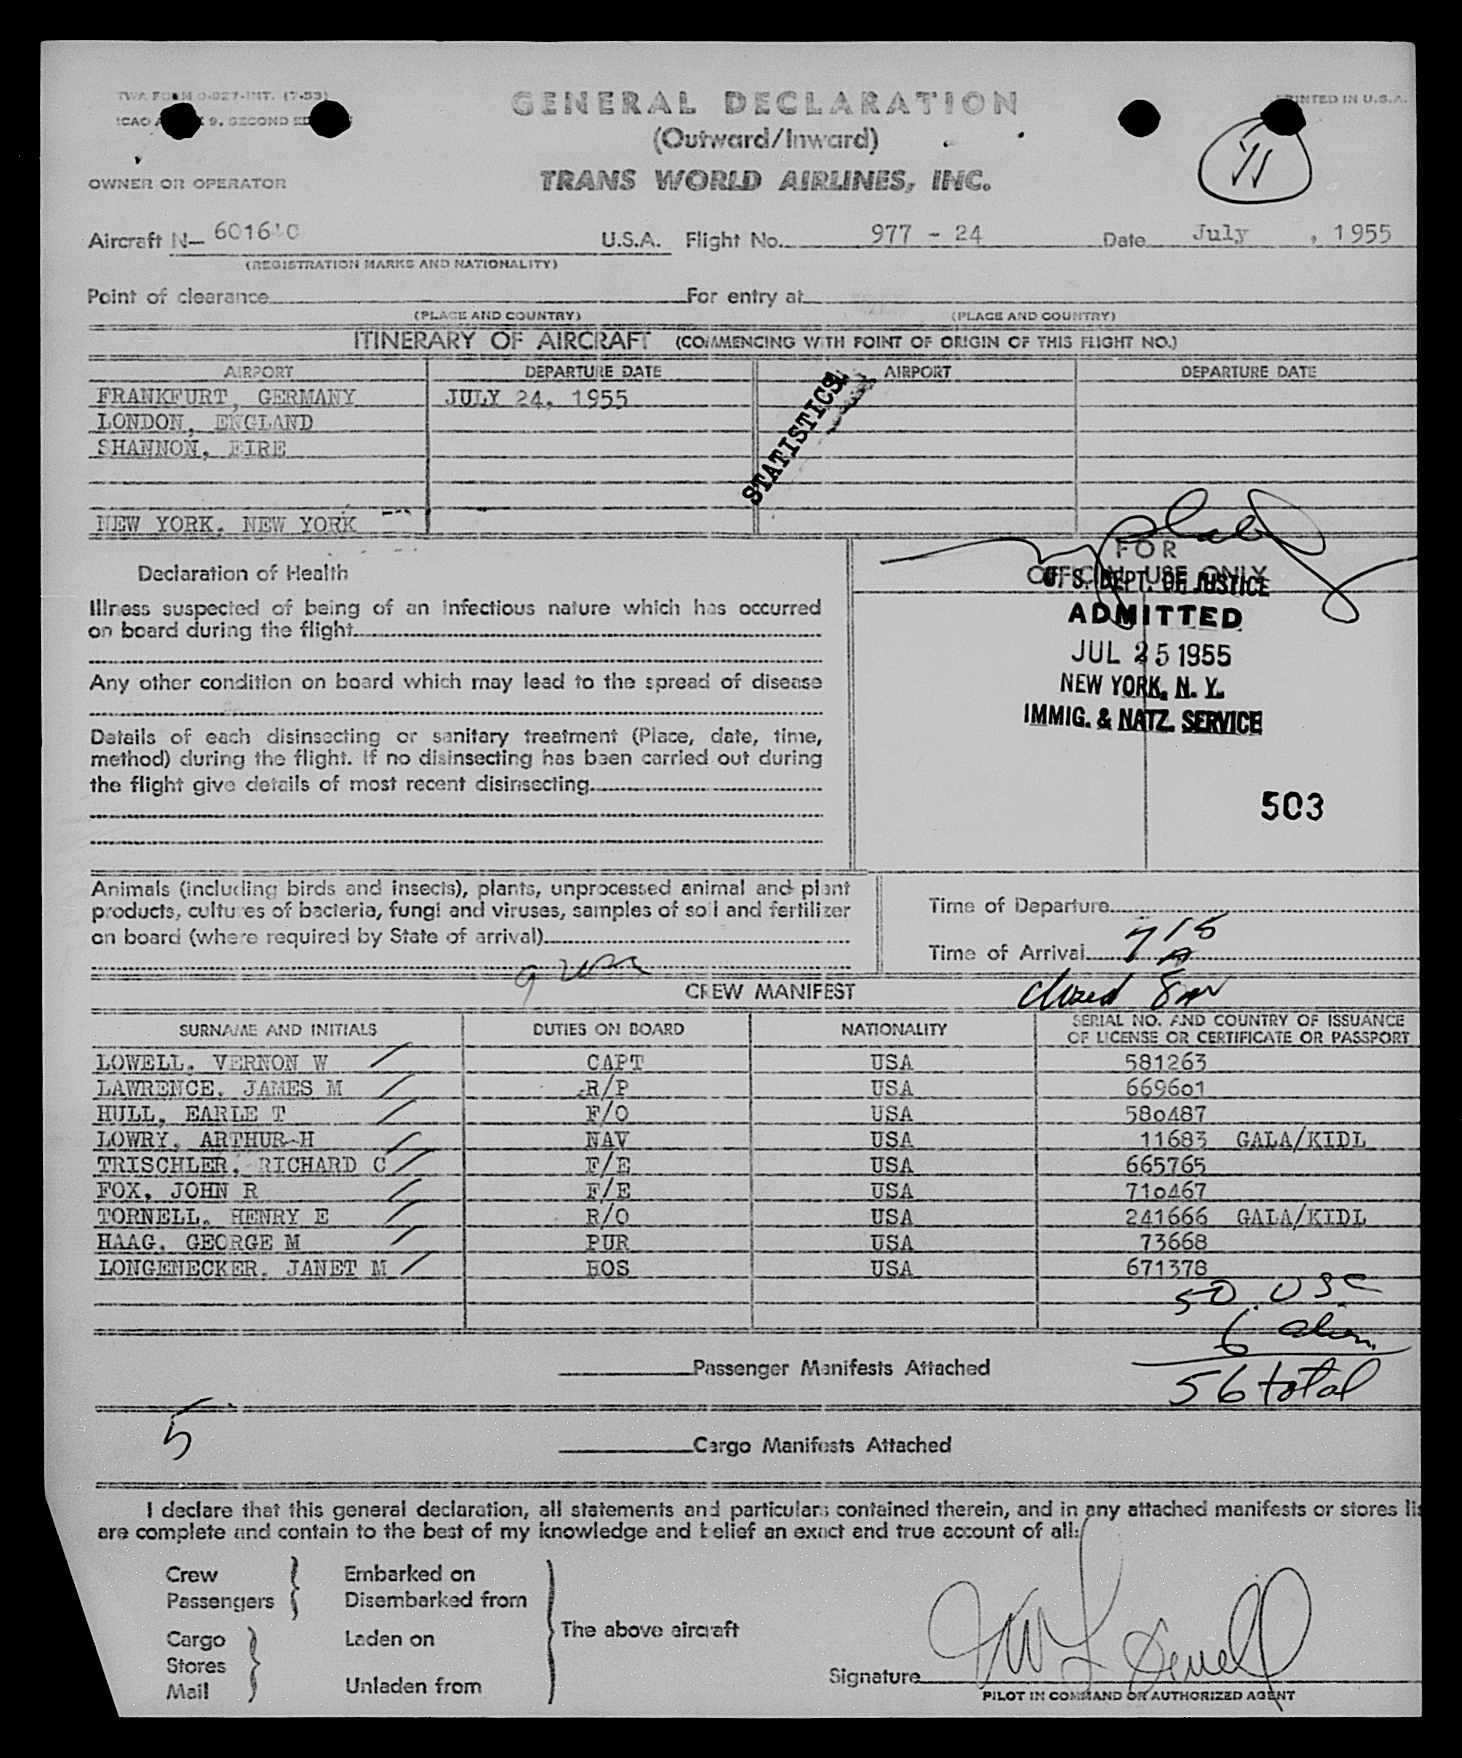 TWA FORM O-027-INT. (7-53)
GENERAL DECLARATION
PRINTED IN U.S.A.
ICAO 9, SECOND
(Outward/Inward)
11
OWNER OR OPERATOR
TRANS WORLD AIRLINES, INC.
Aircraft N- U.S.A. Flight No. 977 - 24 Date July , 1955
(REGISTRATION MARKS AND NATIONALITY)
Point of clearance For entry at
(PLACE AND COUNTRY) (PLACE AND COUNTRY)
ITINERARY OF AIRCRAFT (COMMENCING WITH POINT OF ORIGIN OF THIS FLIGHT NO.)
AIRPORT DEPARTURE DATE AIRPORT DEPARTURE DATE
FRANKFURT, GERMANY JULY 24, 1955
LONDON, ENGLAND
SHANNON, EIRE
STATISTICS
NEW YORK, NEW YORK
FOR
OFFICIAL USE ONLY
U. S. DEPT. OF JUSTICE
ADMITTED
JUL 25 1955
NEW YORK, N. Y.
IMMIG. & NATZ. SERVICE
503
Declaration of Health
Illness suspected of being of an infectious nature which has occurred
on board during the flight
Any other condition on board which may lead to the spread of disease
Details of each disinsecting or sanitary treatment (Place, date, time,
method) during the flight. If no disinsecting has been carried out during
the flight give details of most recent disinsecting
Animals (including birds and insects), plants, unprocessed animal and plant
products, cultures of bacteria, fungi and viruses, samples of soil and fertilizer
on board (where required by State of arrival)
Time of Departure
Time of Arrival 715 A
9 USC
closed
CREW MANIFEST
SURNAME AND INITIALS DUTIES ON BOARD NATIONALITY SERIAL NO. AND COUNTRY OF ISSUANCE
OF LICENSE OR CERTIFICATE OR PASSPORT
LOWELL, VERNON W CAPT USA 581263
LAWRENCE, JAMES M R/P USA 669601
HULL, EARLE T F/O USA 580487
LOWRY, ARTHUR H NAV USA 11683 GALA/KIDL
TRISCHLER, RICHARD C F/E USA 665765
FOX, JOHN R F/E USA 710467
TORNELL, HENRY E R/O USA 241666 GALA/KIDL
HAAG, GEORGE M PUR USA 73668
LONGENECKER, JANET M HOS USA 671378
50 USC
6 alien
56 total
Passenger Manifests Attached
5
Cargo Manifests Attached
I declare that this general declaration, all statements and particulars contained therein, and in any attached manifests or stores lis
are complete and contain to the best of my knowledge and belief an exact and true account of all:
Crew
Passengers
Embarked on
Disembarked from
Cargo
Stores
Mail
Laden on
Unladen from
The above aircraft
Signature VW Lowell
PILOT IN COMMAND OR AUTHORIZED AGENT